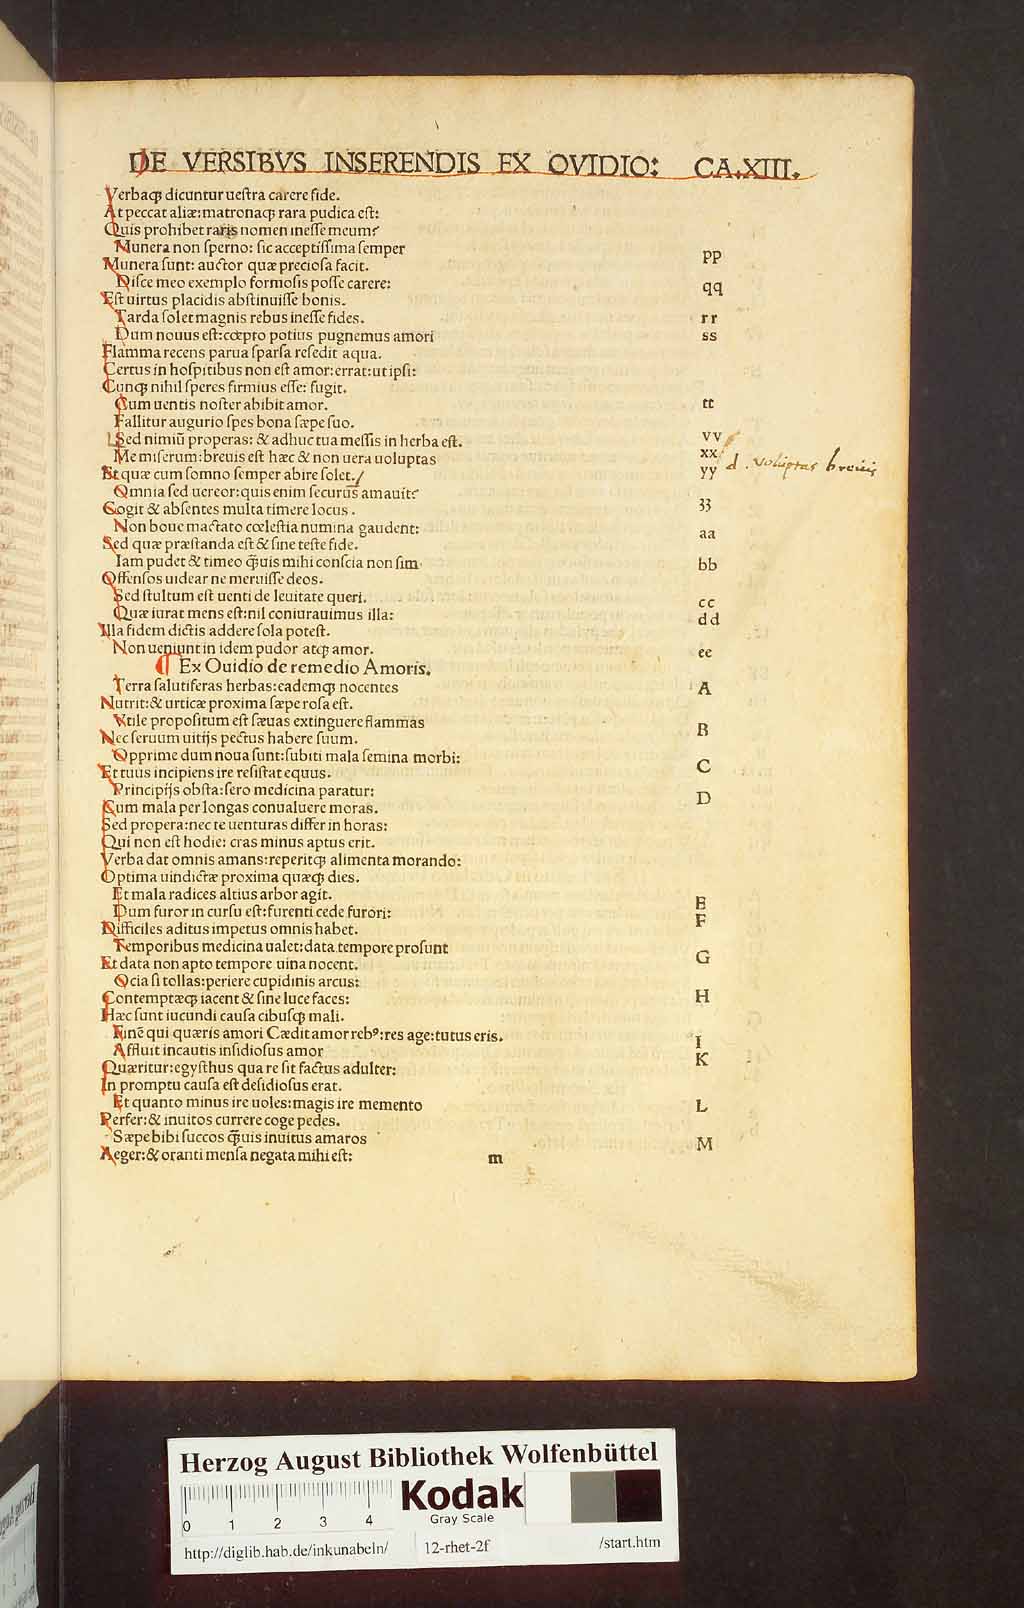 DE VERSIBVS INSERENDIS EX OVIDIO: CA.XIII.
Verbaqꝫ dicuntur ueſtra carere fide.
At peccat aliæ: matronaqꝫ rara pudica eſt:
Quis prohibet raris nomen ineſſe meum?
Munera non ſperno: ſic acceptiſſima ſemper pp
Munera ſunt: auctor quæ precioſa facit.
Diſce meo exemplo formoſis poſſe carere: qq
Eſt uirtus placidis abſtinuiſſe bonis.
Tarda ſolet magnis rebus ineſſe fides. rr
Dum nouus eſt: cœpto potius pugnemus amori ss
Flamma recens parua ſparſa reſedit aqua.
Certus in hoſpitibus non eſt amor: errat: ut ipſi:
Cunqꝫ nihil ſperes firmius eſſe: fugit.
Cum uentis noſter abibit amor. tt
Fallitur augurio ſpes bona ſæpe ſuo.
Sed nimiū properas: & adhuc tua meſſis in herba eſt. vv
Me miſerum: breuis eſt hæc & non uera uoluptas xx
Et quæ cum ſomno ſemper abire ſolet. yy d. voluptas breuis
Omnia ſed uereor: quis enim ſecurus amauit?
Cogit & abſentes multa timere locus. ʒʒ
Non boue mactato cœleſtia numina gaudent:
Sed quæ præſtanda eſt & ſine teſte fide. aa
Iam pudet & timeo q̄uis mihi conſcia non ſim bb
Offenſos uidear ne meruiſſe deos.
Sed ſtultum eſt uenti de leuitate queri. cc
Quæ iurat mens eſt: nil coniurauimus illa: dd
Illa fidem dictis addere ſola poteſt.
Non ueniunt in idem pudor atqꝫ amor. ee
¶ Ex Ouidio de remedio Amoris.
Terra ſalutiferas herbas: eademqꝫ nocentes A
Nutrit: & urticæ proxima ſæpe roſa eſt.
Vtile propoſitum eſt ſæuas extinguere flammas B
Nec ſeruum uitijs pectus habere ſuum.
Opprime dum noua ſunt: ſubiti mala ſemina morbi: C
Et tuus incipiens ire reſiſtat equus.
Principijs obſta: ſero medicina paratur: D
Cum mala per longas conualuere moras.
Sed propera: nec te uenturas differ in horas:
Qui non eſt hodie: cras minus aptus erit.
Verba dat omnis amans: reperitqꝫ alimenta morando:
Optima uindictæ proxima quæqꝫ dies.
Et mala radices altius arbor agit. E
Dum furor in curſu eſt: furenti cede furori: F
Difficiles aditus impetus omnis habet.
Temporibus medicina ualet: data tempore proſunt G
Et data non apto tempore uina nocent.
Ocia ſi tollas: periere cupidinis arcus:
Contemptæqꝫ iacent & ſine luce faces: H
Hæc ſunt iucundi cauſa cibuſqꝫ mali.
Finē qui quæris amori Cædit amor rebꝰ: res age: tutus eris. I
Affluit incautis inſidioſus amor K
Quæritur: egyſthus qua re ſit factus adulter:
In promptu cauſa eſt deſidioſus erat.
Et quanto minus ire uoles: magis ire memento L
Perfer: & inuitos currere coge pedes.
Sæpe bibi ſuccos q̄uis inuitus amaros M
Aeger: & oranti menſa negata mihi eſt: m
Herzog August Bibliothek Wolfenbüttel
0 1 2 3 4 Kodak
Gray Scale
http://diglib.hab.de/inkunabeln/ 12-rhet-2f /start.htm